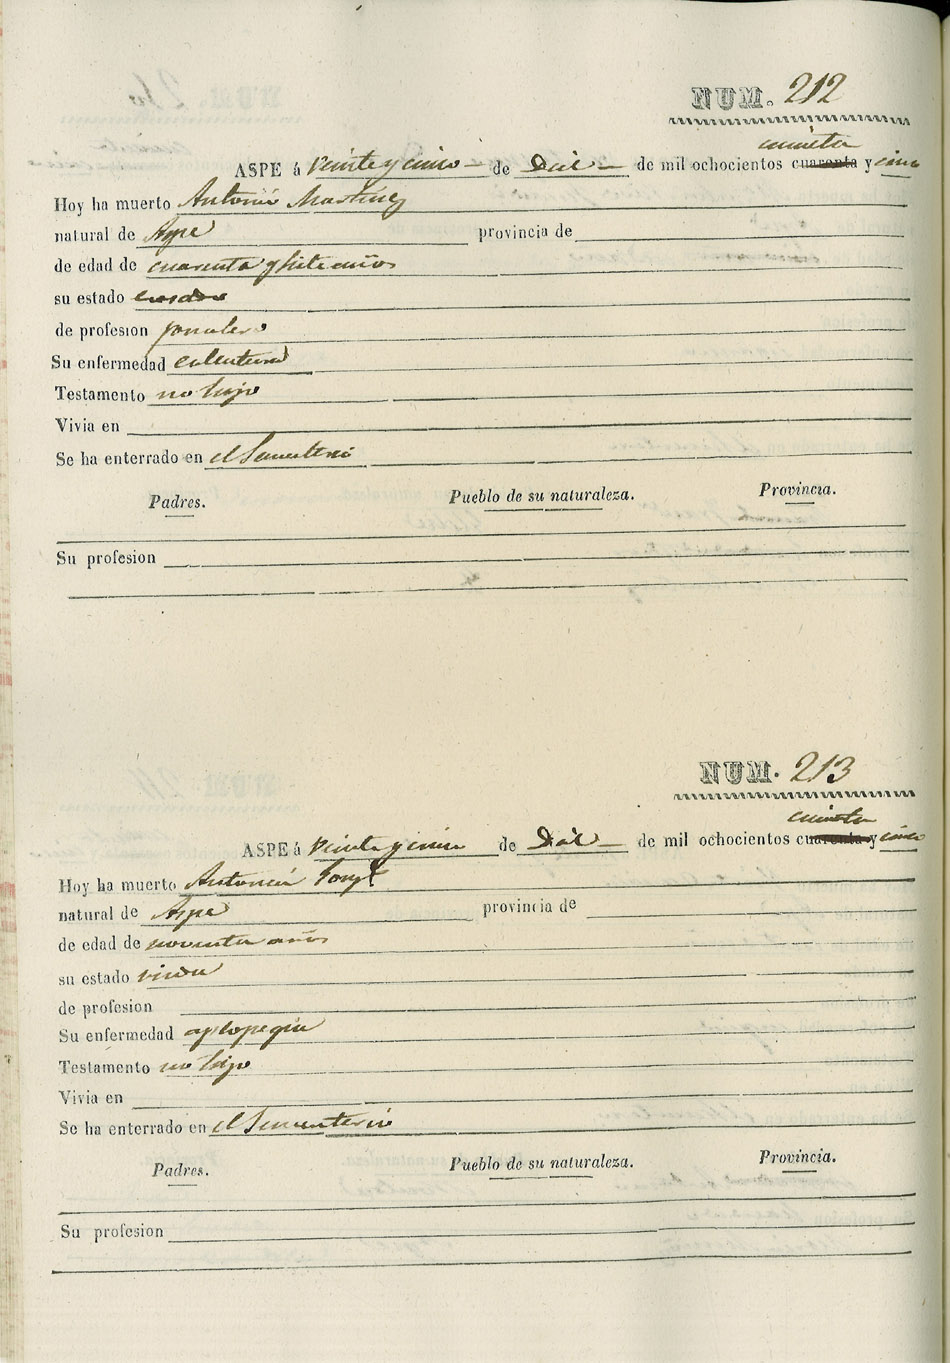 NUM. 212
cuinta
ASPE á veinte y cinco de Dic de mil ochocientos cuarenta y cinco
Hoy ha muerto Antonio Martinez
natural de Aspe provincia de
de edad de cuarenta y siete años
su estado casado
de profesion jornalero
Su enfermedad calentura
Testamento no hizo
Vivia en
Se ha enterrado en el Sementerio
Padres. Pueblo de su naturaleza. Provincia.
Su profesion
NUM. 213
cuinta
ASPE á veinte y cinco de Dic de mil ochocientos cuarenta y cinco
Hoy ha muerto Antonia
natural de Aspe provincia de
de edad de noventa años
su estado viuda
de profesion
Su enfermedad
Testamento no hizo
Vivia en
Se ha enterrado en el Sementerio
Padres. Pueblo de su naturaleza. Provincia.
Su profesion